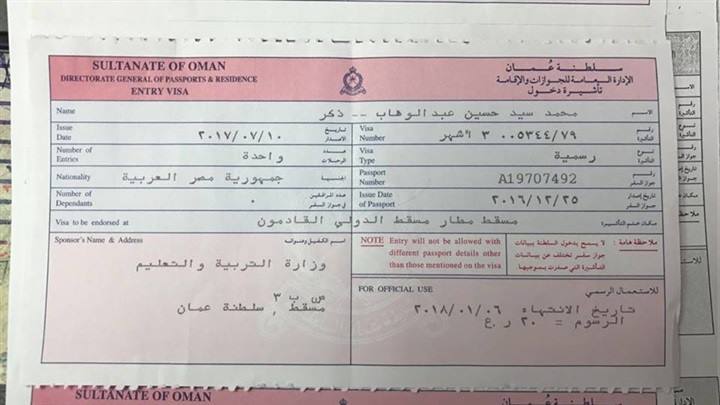 SULTANATE OF OMAN
DIRECTORATE GENERAL OF PASSPORTS & RESIDENCE
ENTRY VISA
سلطنة عُمان
الإدارة العامة للجوازات والإقامة
تأشيرة دخول
Name محمد سيد حسين عبدالوهاب -- ذكر الاسم
Issue Date ٢٠١٧/٠٧/١٠ تاريخ الاصدار
Visa Number ٣ اشهر ٠٠٥٣٤٤/٧٩ رقم التأشيرة
Number of Entries واحدة عدد الرحلات
Visa Type رسمية نوع التأشيرة
Nationality جمهورية مصر العربية الجنسية
Passport Number A19707492 رقم جواز السفر
Number of Dependants ٠ عدد المرافقين في جواز السفر
Issue Date of Passport ٢٠١٦/١٢/٢٥ تاريخ إصدار جواز السفر
Visa to be endorsed at مسقط مطار مسقط الدولي القادمون مكان ختم التأشيرة
Sponsor's Name & Address اسم الكفيل وعنوانه
وزارة التربية والتعليم
ص ب ٣
مسقط , سلطنة عمان
NOTE Entry will not be allowed with
different passport details other
than those mentioned on the visa
ملاحظة هامة : لا يسمح بدخول السلطنة ببيانات
جواز سفر تختلف عن بيانات
التأشيرة التي صدرت بموجبها
FOR OFFICIAL USE للاستعمال الرسمي
تاريخ الانتهاء ٢٠١٨/٠١/٠٦
الرسوم = ٢٠ ر.ع
SULTANATE OF OMAN